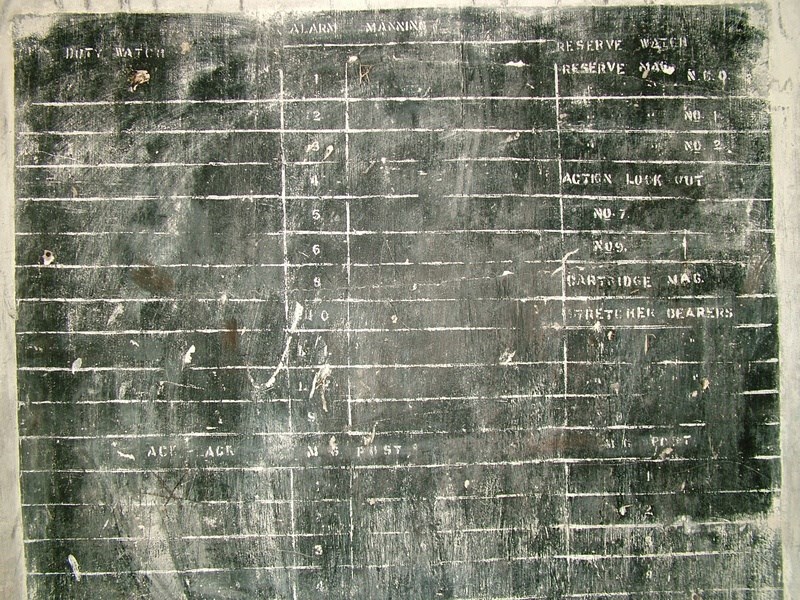 ALARM MANNING
DUTY WATCH
RESERVE WATCH
1 RESERVE MAG. N.C.O.
2 " " NO. 1
3 " " NO. 2
4 ACTION LOOK OUT
5 NO. 7.
6 NO 9.
9 CARTRIDGE MAG.
10 STRETCHER BEARERS
ACK - ACK M G POST M.G. POST
1 1
2 2
3
4